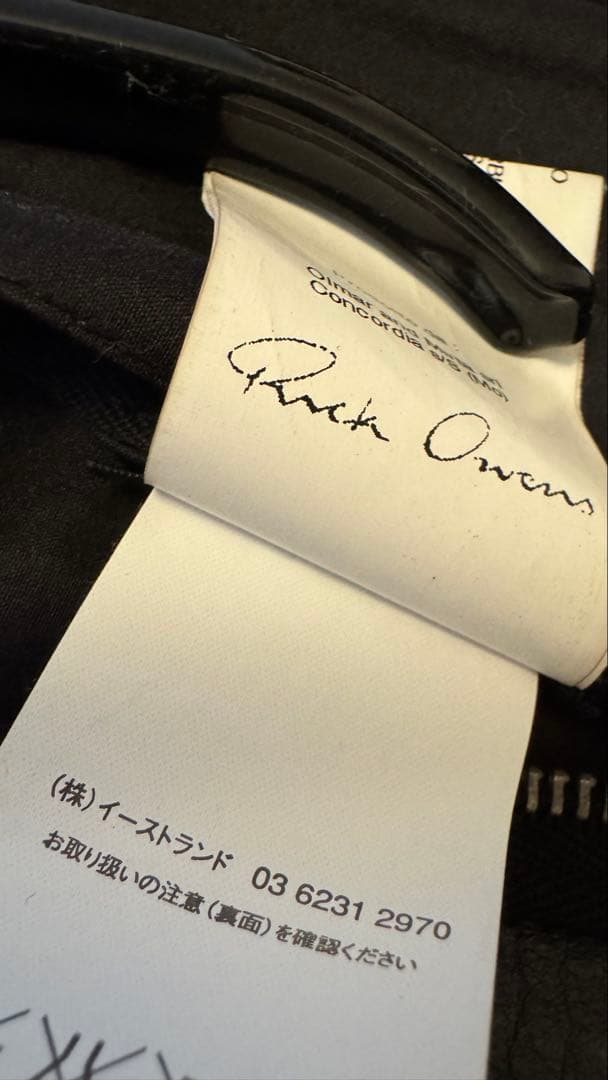 Olmar and
Concordia s/S (Mo)
Rick Owens
(株)イーストランド 03 6231 2970
お取り扱いの注意(裏面)を確認ください